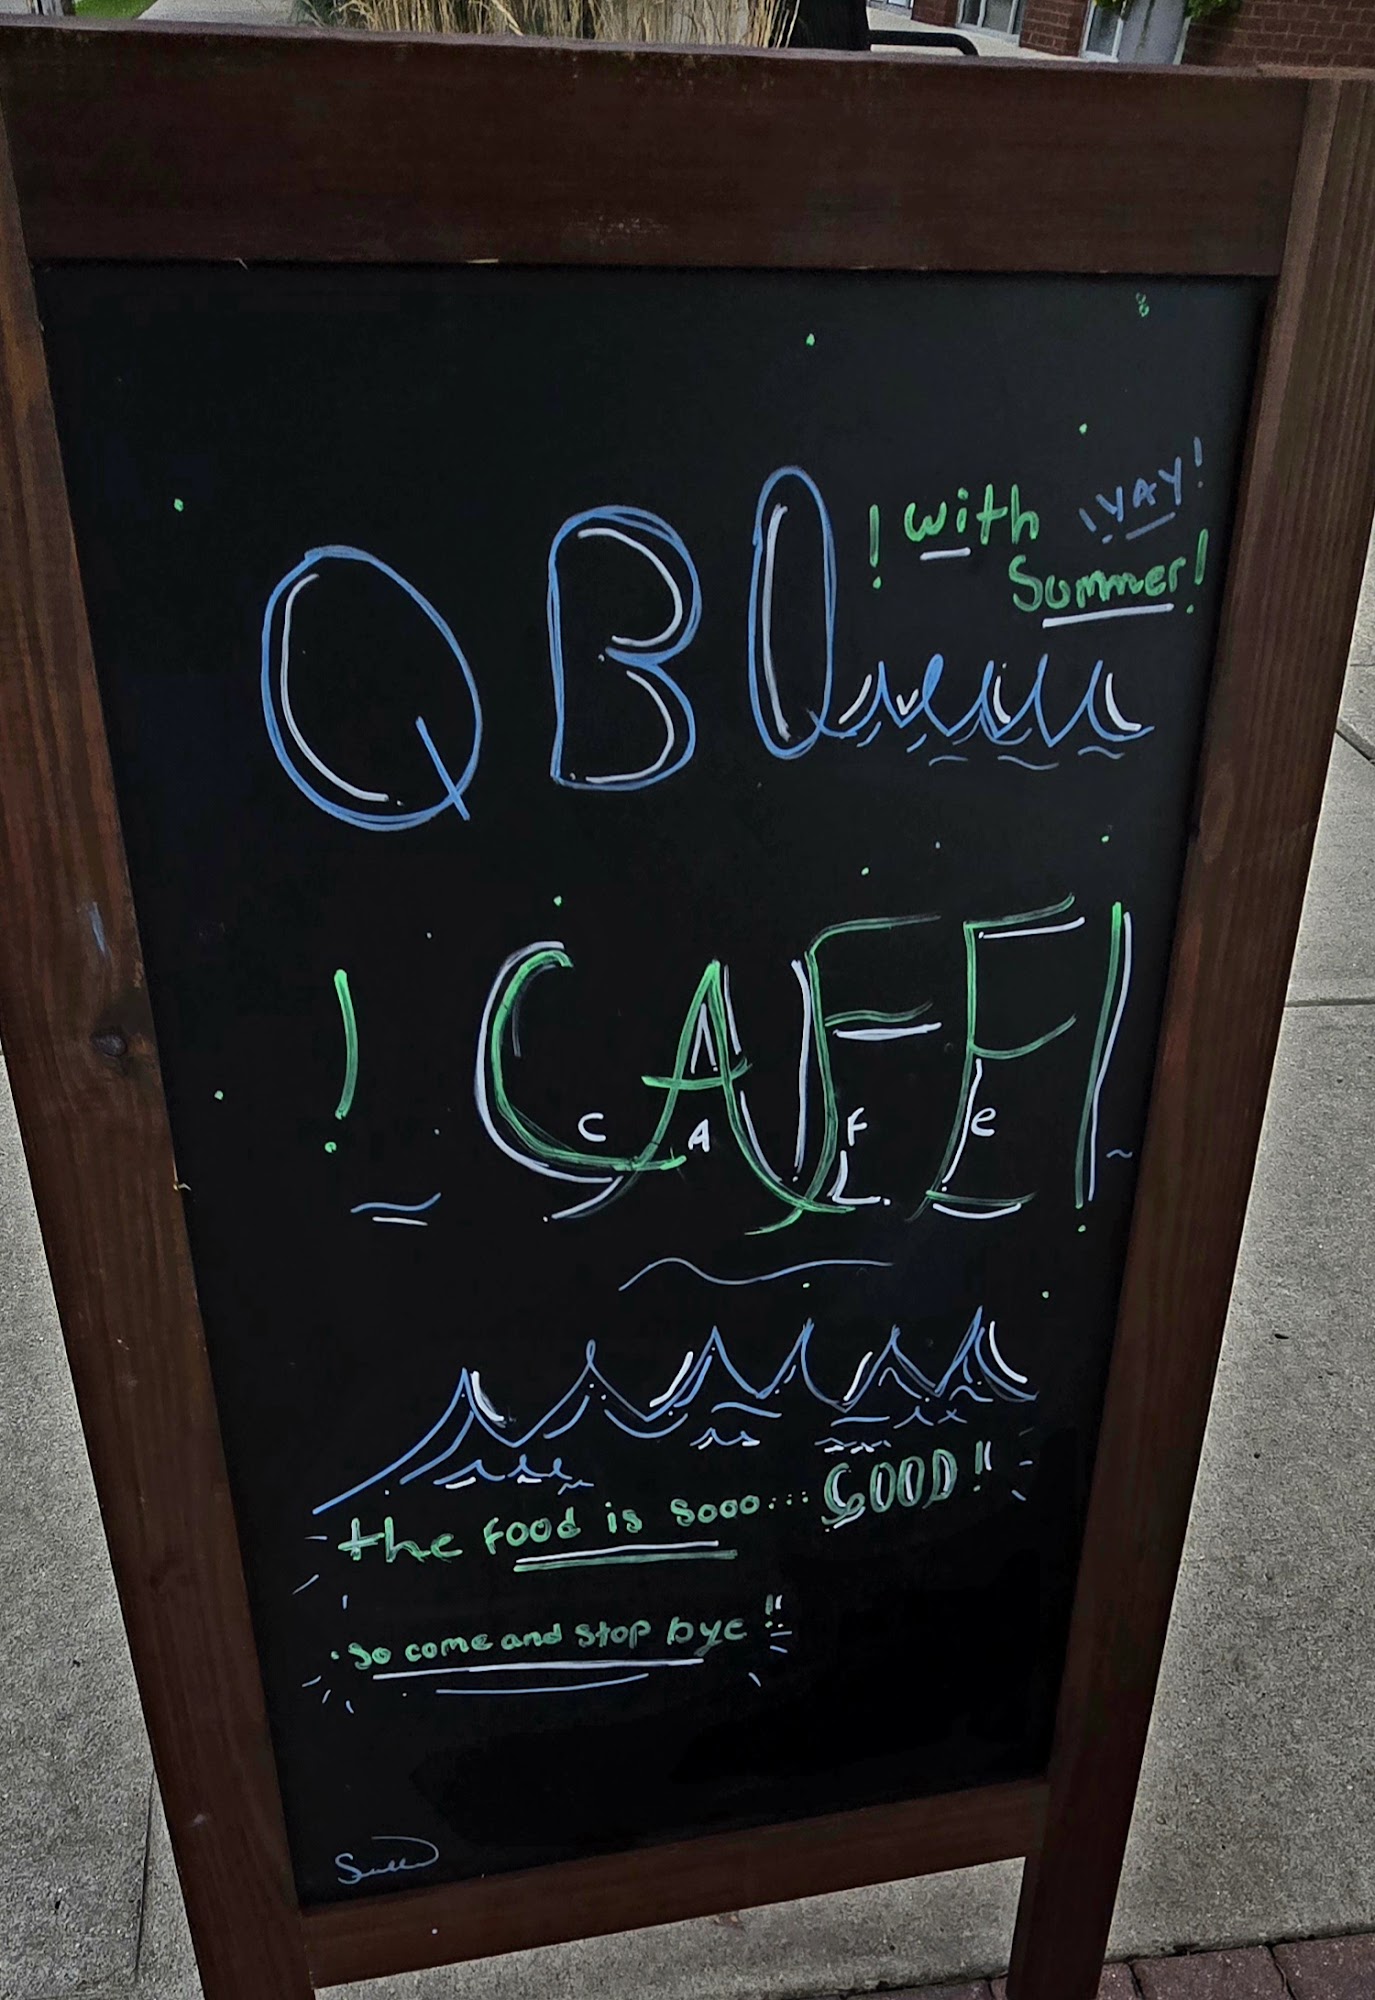 QBD
! with
¡YAY!
Summer!
! CAFE!
C A F e
the Food is sooo... GOOD!!
so come and stop bye!!